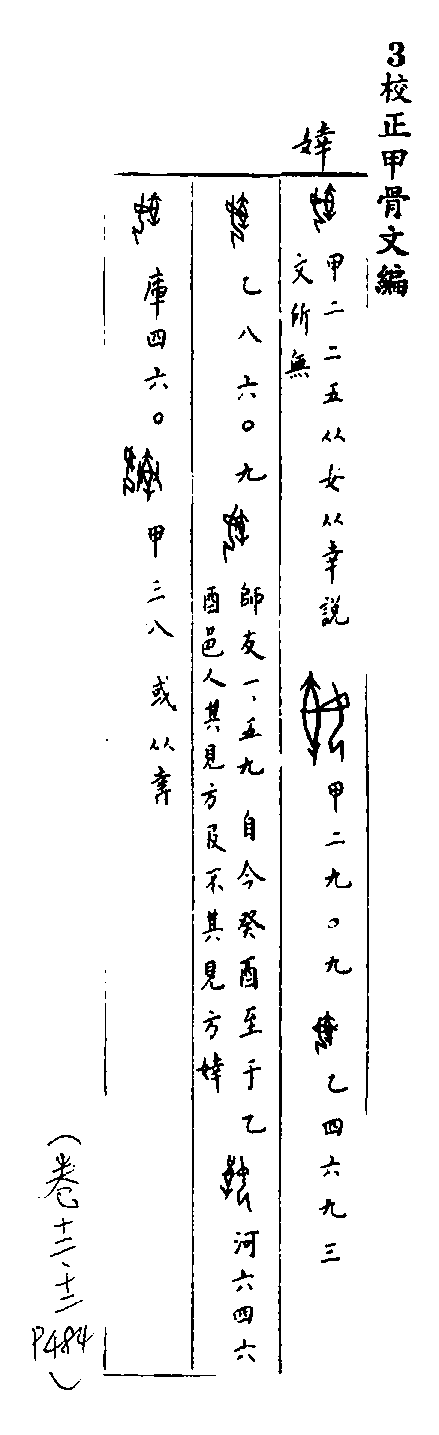 3校正甲骨文編
婞
甲二二五从女从幸説
文所無
甲二九〇九
乙四六九三
乙八六〇九
師友一、五九
自今癸酉至于乙
酉邑人其見方𠬝不其見方婞
河六四六
庫四六〇
甲三八
或从㚔
(卷十二、十二
P484)